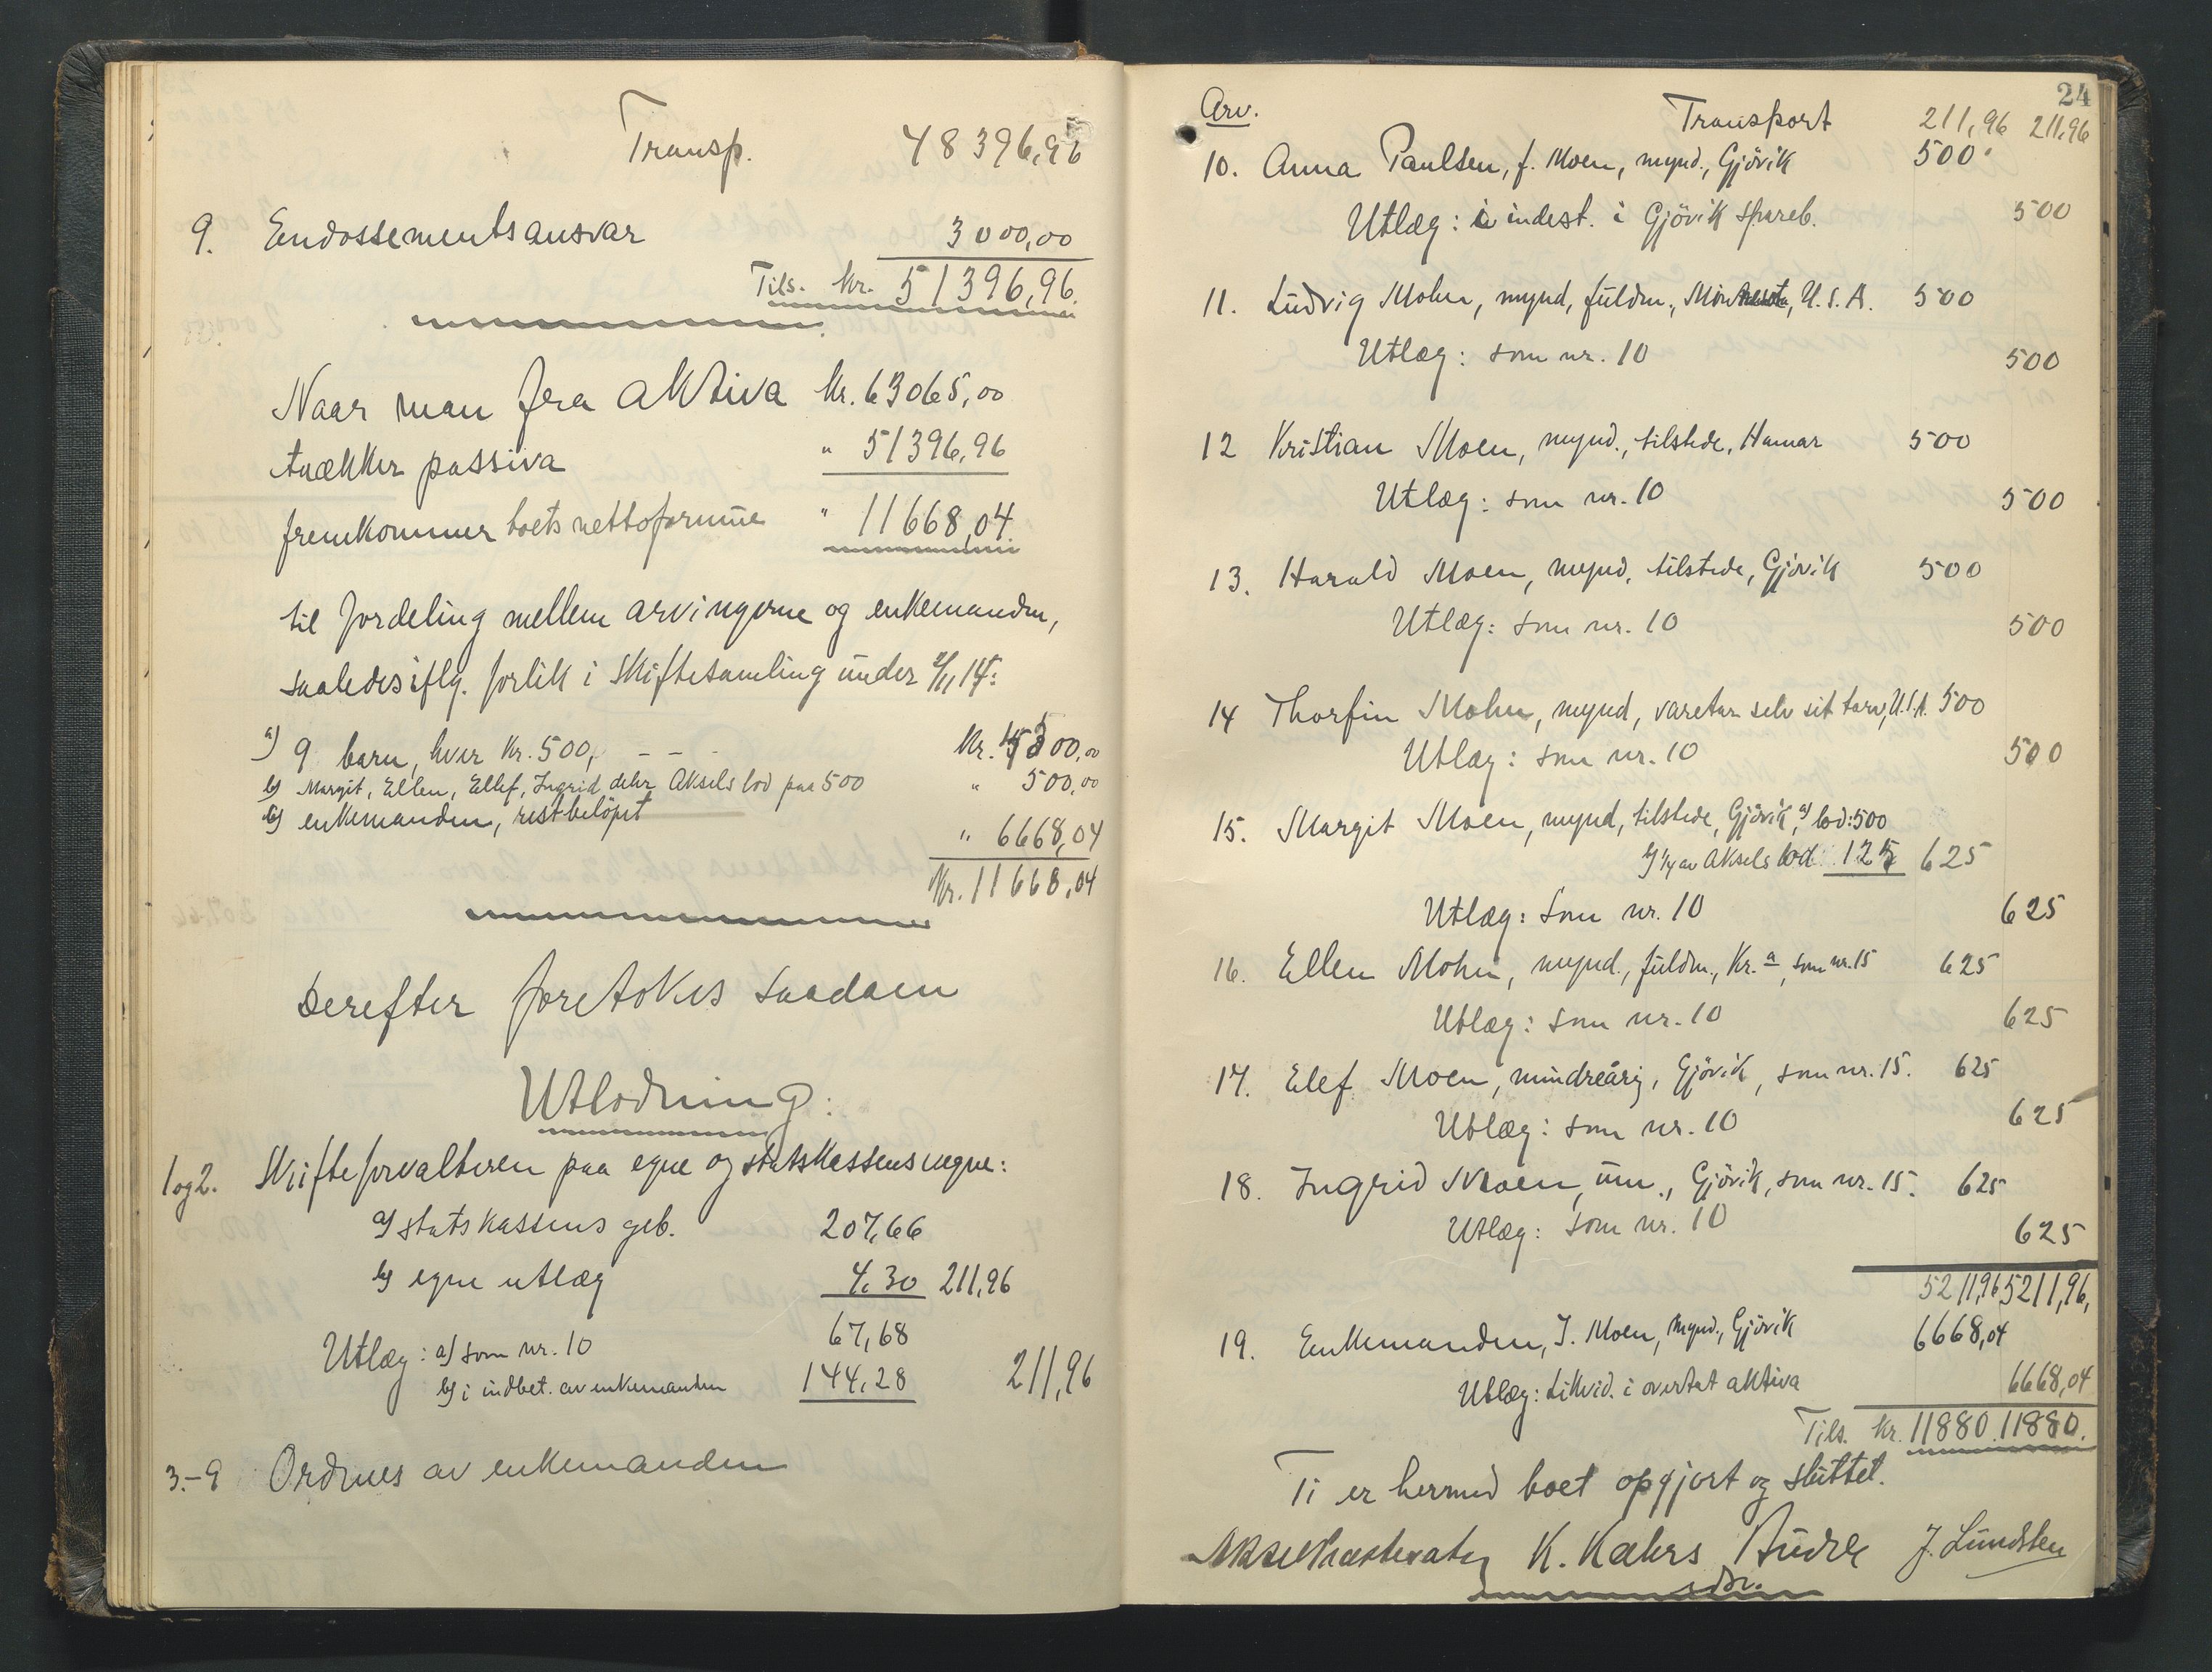 Transp. 48396,96
9. Endossementsansvar 3000,00
Tils. kr. 51396,96.
Naar man fra aktiva kr. 63065,00
trækker passiva " 51396,96
fremkommer boets nettoformue " 11668,04.
til fordeling mellem arvingerne og enkemanden,
saaledes iflg. forlik i skiftesamling under /11 14:
a) 9 barn, hver kr. 500, - - - kr. 4500,00
b) Margit, Ellen, Ellef, Ingrid deler Aksels lod paa 500 " 500,00
c) enkemanden, restbeløpet " 6668,04
Kr. 11668,04
Derefter foretokes saadan
Utlodning:
1 og 2. Skifteforvalteren paa egne og statskassens vegne:
a) statskassens geb. 207,66
b) egne utlæg 4,30 211,96
Utlæg: a) som nr. 10 67,68
b) i indbet. av enkemanden 144,28 211,96
3.-9 Ordnes av enkemanden
24
Arv. Transport 211,96 211,96
10. Anna Paulsen, f. Moen, mynd., Gjövik 500
Utlæg: i indest. i Gjövik spareb. 500
11. Ludvig Mohn, mynd, fuldm., U.S.A. 500
Utlæg: som nr. 10 500
12 Kristian Moen, mynd., tilstede, Hamar 500
Utlæg: som nr. 10 500
13. Harald Moen, mynd, tilstede, Gjövik 500
Utlæg: som nr. 10 500
14 Thorfin Mohn, mynd, varetar selv sit tarv, U.S.A. 500
Utlæg: som nr. 10 500
15. Margit Moen, mynd, tilstede, Gjövik, a) lod: 500
b) 1/4 av Aksels lod 125 625
Utlæg: som nr. 10 625
16. Ellen Mohn, mynd., fuldm., Kr.a, som nr. 15 625
Utlæg: som nr. 10 625
17. Elef Moen, mindreårig, Gjövik, som nr. 15. 625
Utlæg: som nr. 10 625
18. Ingrid Moen, um., Gjövik, som nr. 15. 625
Utlæg: som nr. 10 625
5211,96 5211,96,
19. Enkemanden, J. Moen, mynd., Gjövik 6668,04
Utlæg: Likvid. i overtat aktiva 6668,04
Tils. kr. 11880. 11880.
Ti er hermed boet opgjort og sluttet.
K. Kahrs J. Lundsten